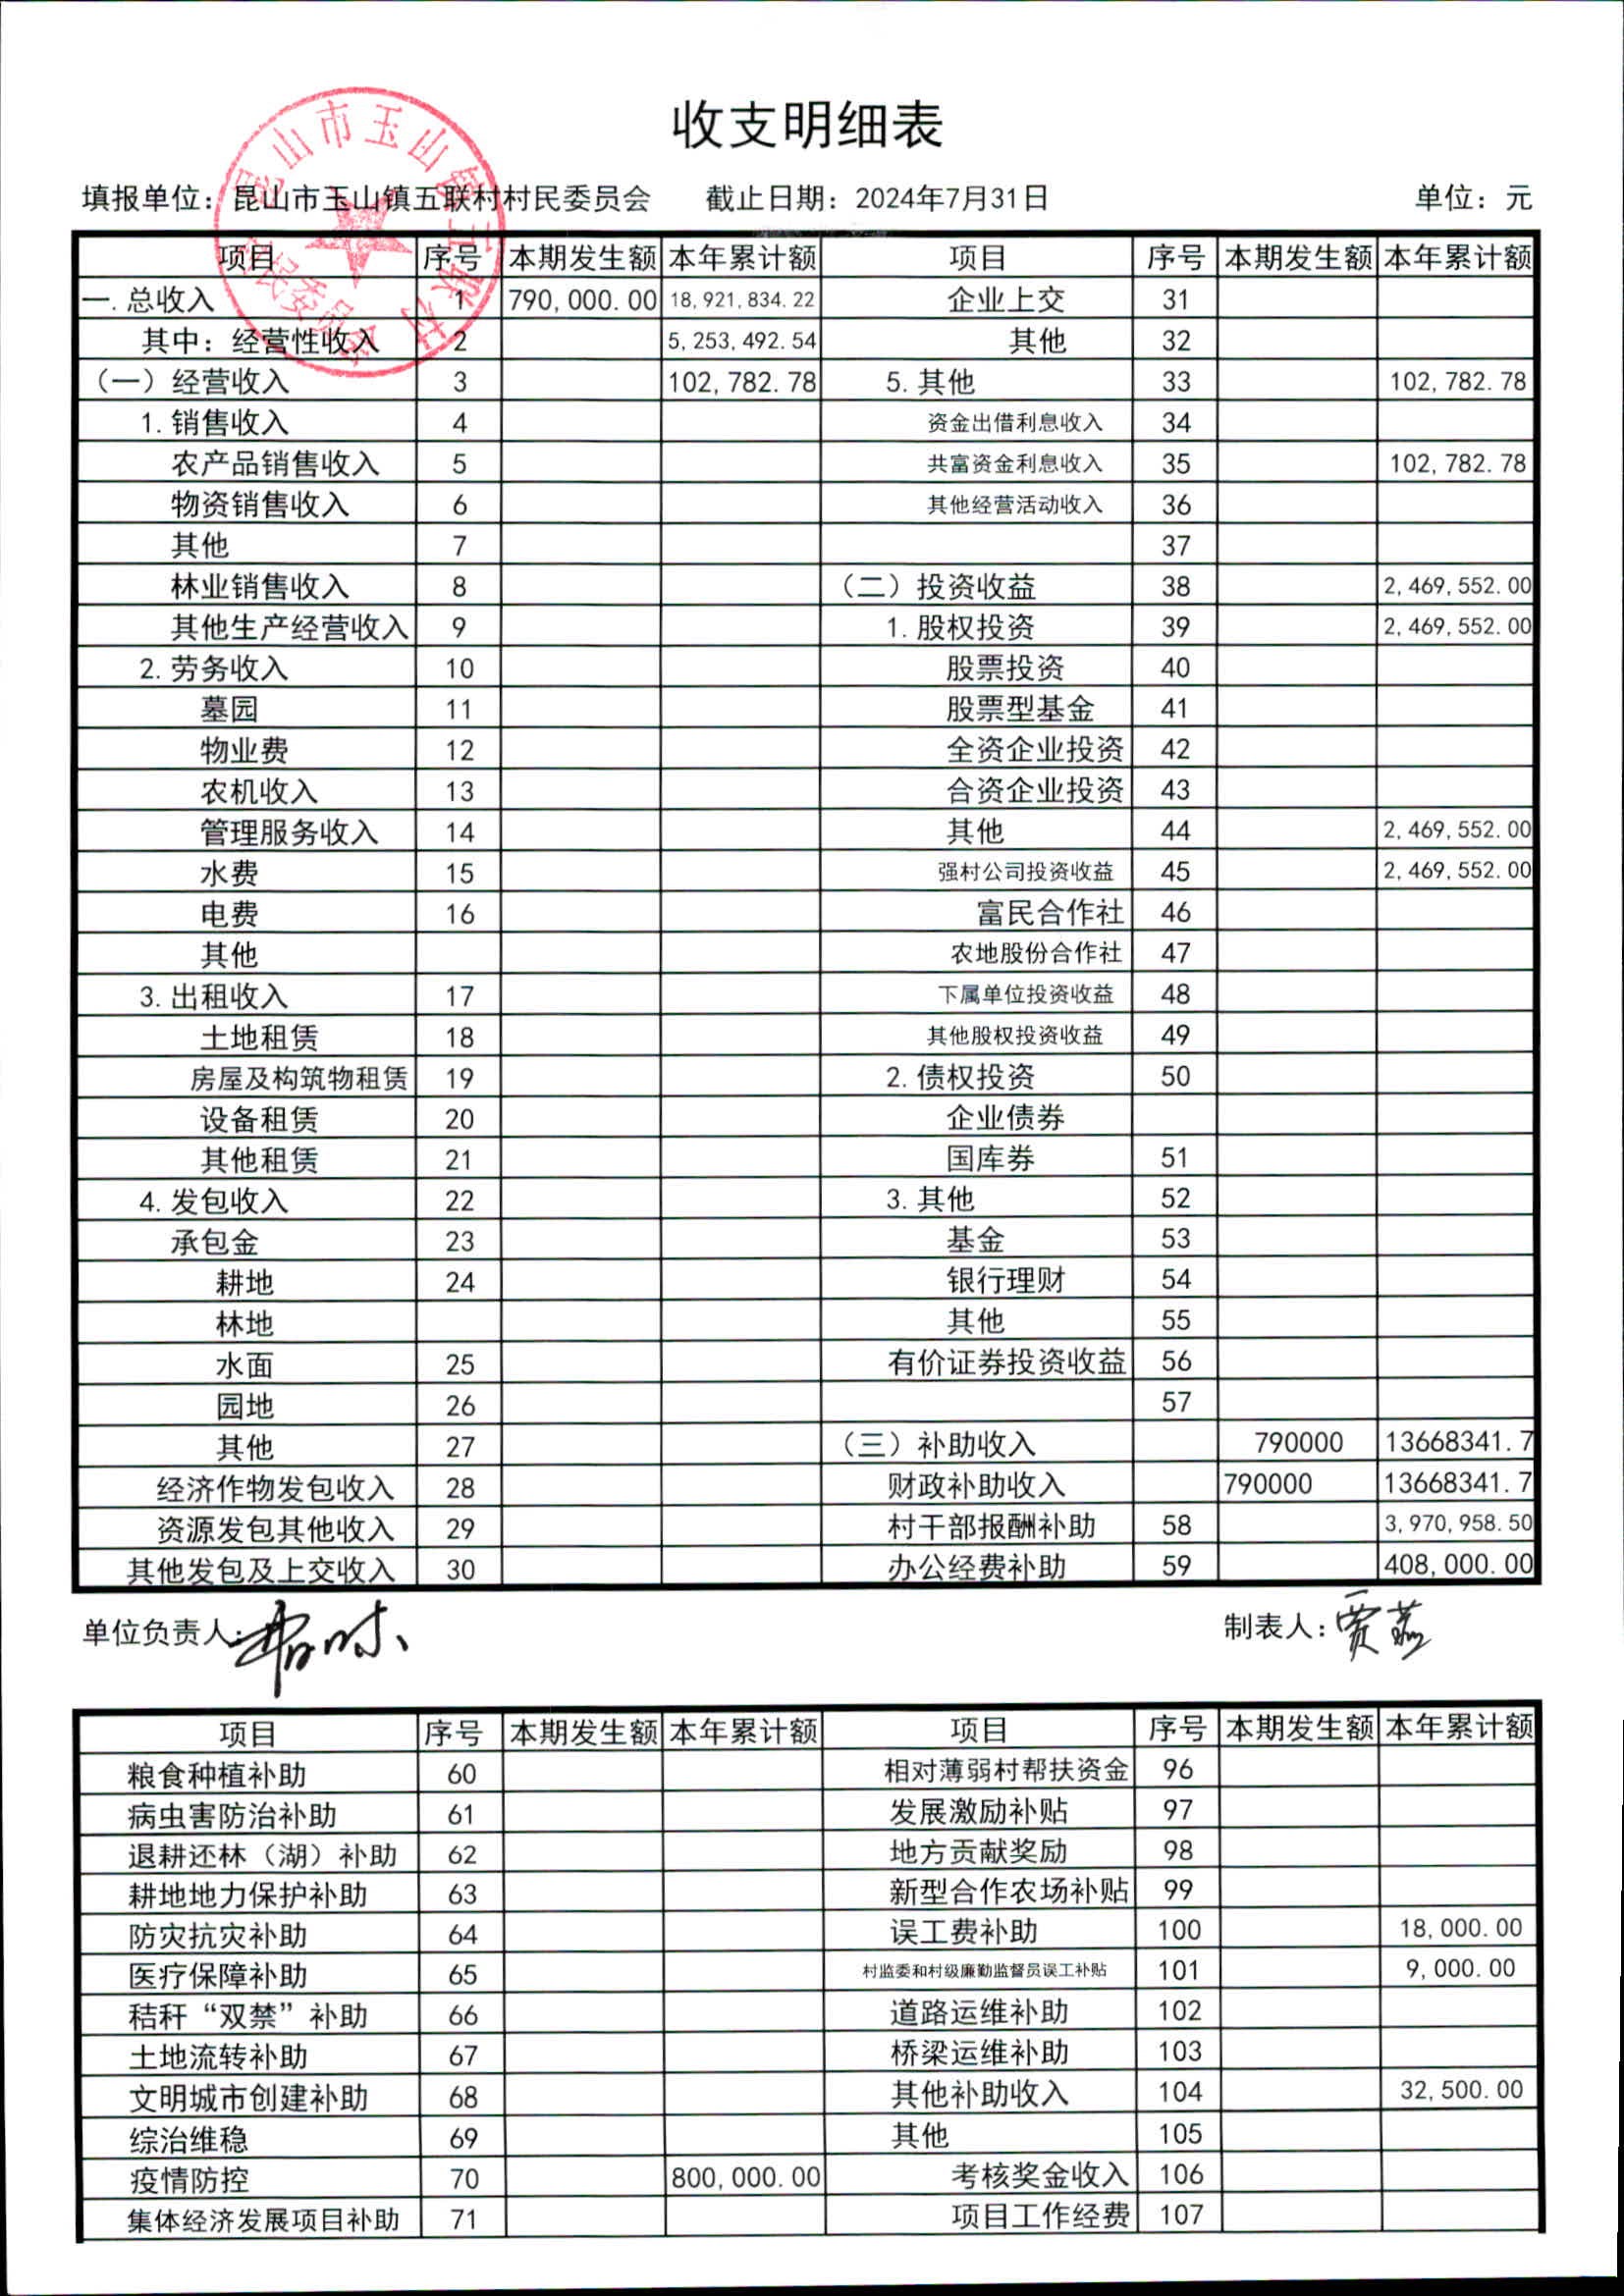 收支明细表
昆山市玉山镇五联村
村民委员会
填报单位：昆山市玉山镇五联村村民委员会 截止日期：2024年7月31日 单位：元
项目 序号 本期发生额 本年累计额 项目 序号 本期发生额 本年累计额
一.总收入 1 790,000.00 18,921,834.22 企业上交 31
其中：经营性收入 2 5,253,492.54 其他 32
（一）经营收入 3 102,782.78 5.其他 33 102,782.78
1.销售收入 4 资金出借利息收入 34
农产品销售收入 5 共富资金利息收入 35 102,782.78
物资销售收入 6 其他经营活动收入 36
其他 7 37
林业销售收入 8 （二）投资收益 38 2,469,552.00
其他生产经营收入 9 1.股权投资 39 2,469,552.00
2.劳务收入 10 股票投资 40
墓园 11 股票型基金 41
物业费 12 全资企业投资 42
农机收入 13 合资企业投资 43
管理服务收入 14 其他 44 2,469,552.00
水费 15 强村公司投资收益 45 2,469,552.00
电费 16 富民合作社 46
其他 农地股份合作社 47
3.出租收入 17 下属单位投资收益 48
土地租赁 18 其他股权投资收益 49
房屋及构筑物租赁 19 2.债权投资 50
设备租赁 20 企业债券
其他租赁 21 国库券 51
4.发包收入 22 3.其他 52
承包金 23 基金 53
耕地 24 银行理财 54
林地 其他 55
水面 25 有价证券投资收益 56
园地 26 57
其他 27 （三）补助收入 790000 13668341.7
经济作物发包收入 28 财政补助收入 790000 13668341.7
资源发包其他收入 29 村干部报酬补助 58 3,970,958.50
其他发包及上交收入 30 办公经费补助 59 408,000.00
单位负责人： 制表人：
项目 序号 本期发生额 本年累计额 项目 序号 本期发生额 本年累计额
粮食种植补助 60 相对薄弱村帮扶资金 96
病虫害防治补助 61 发展激励补贴 97
退耕还林（湖）补助 62 地方贡献奖励 98
耕地地力保护补助 63 新型合作农场补贴 99
防灾抗灾补助 64 误工费补助 100 18,000.00
医疗保障补助 65 村监委和村级廉勤监督员误工补贴 101 9,000.00
秸秆“双禁”补助 66 道路运维补助 102
土地流转补助 67 桥梁运维补助 103
文明城市创建补助 68 其他补助收入 104 32,500.00
综治维稳 69 其他 105
疫情防控 70 800,000.00 考核奖金收入 106
集体经济发展项目补助 71 项目工作经费 107